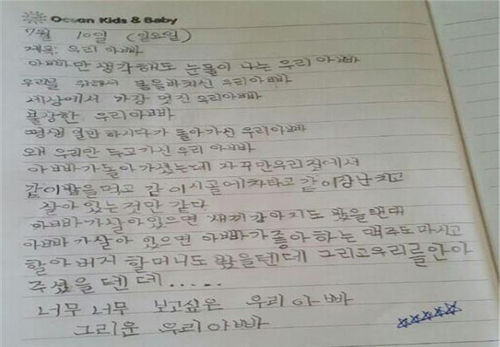 Ocean Kids & Baby
7월 10일 (일요일)
제목: 우리 아빠
아빠만 생각해도 눈물이 나는 우리 아빠
우리를 위해서 몸을바치신 우리아빠
세상에서 가장 멋진 우리아빠
불쌍한 우리아빠
평생 일만 하시다가 돌아가신 우리아빠
왜 우리만 두고가신 우리 아빠
아빠가돌아가셨는데 자꾸만우리집에서
같이밥을먹고 같이시골에차타고 같이장난치고
살아있는것만 같다
아빠가살아있으면 새끼강아지도 봤을텐데
아빠가살아 있으면 아빠가좋아하는 맥주도마시고
할아버지 할머니도 봤을텐데 그리고우리를안아
주셨을텐데.....
너무 너무 보고싶은 우리아빠
그리운 우리아빠